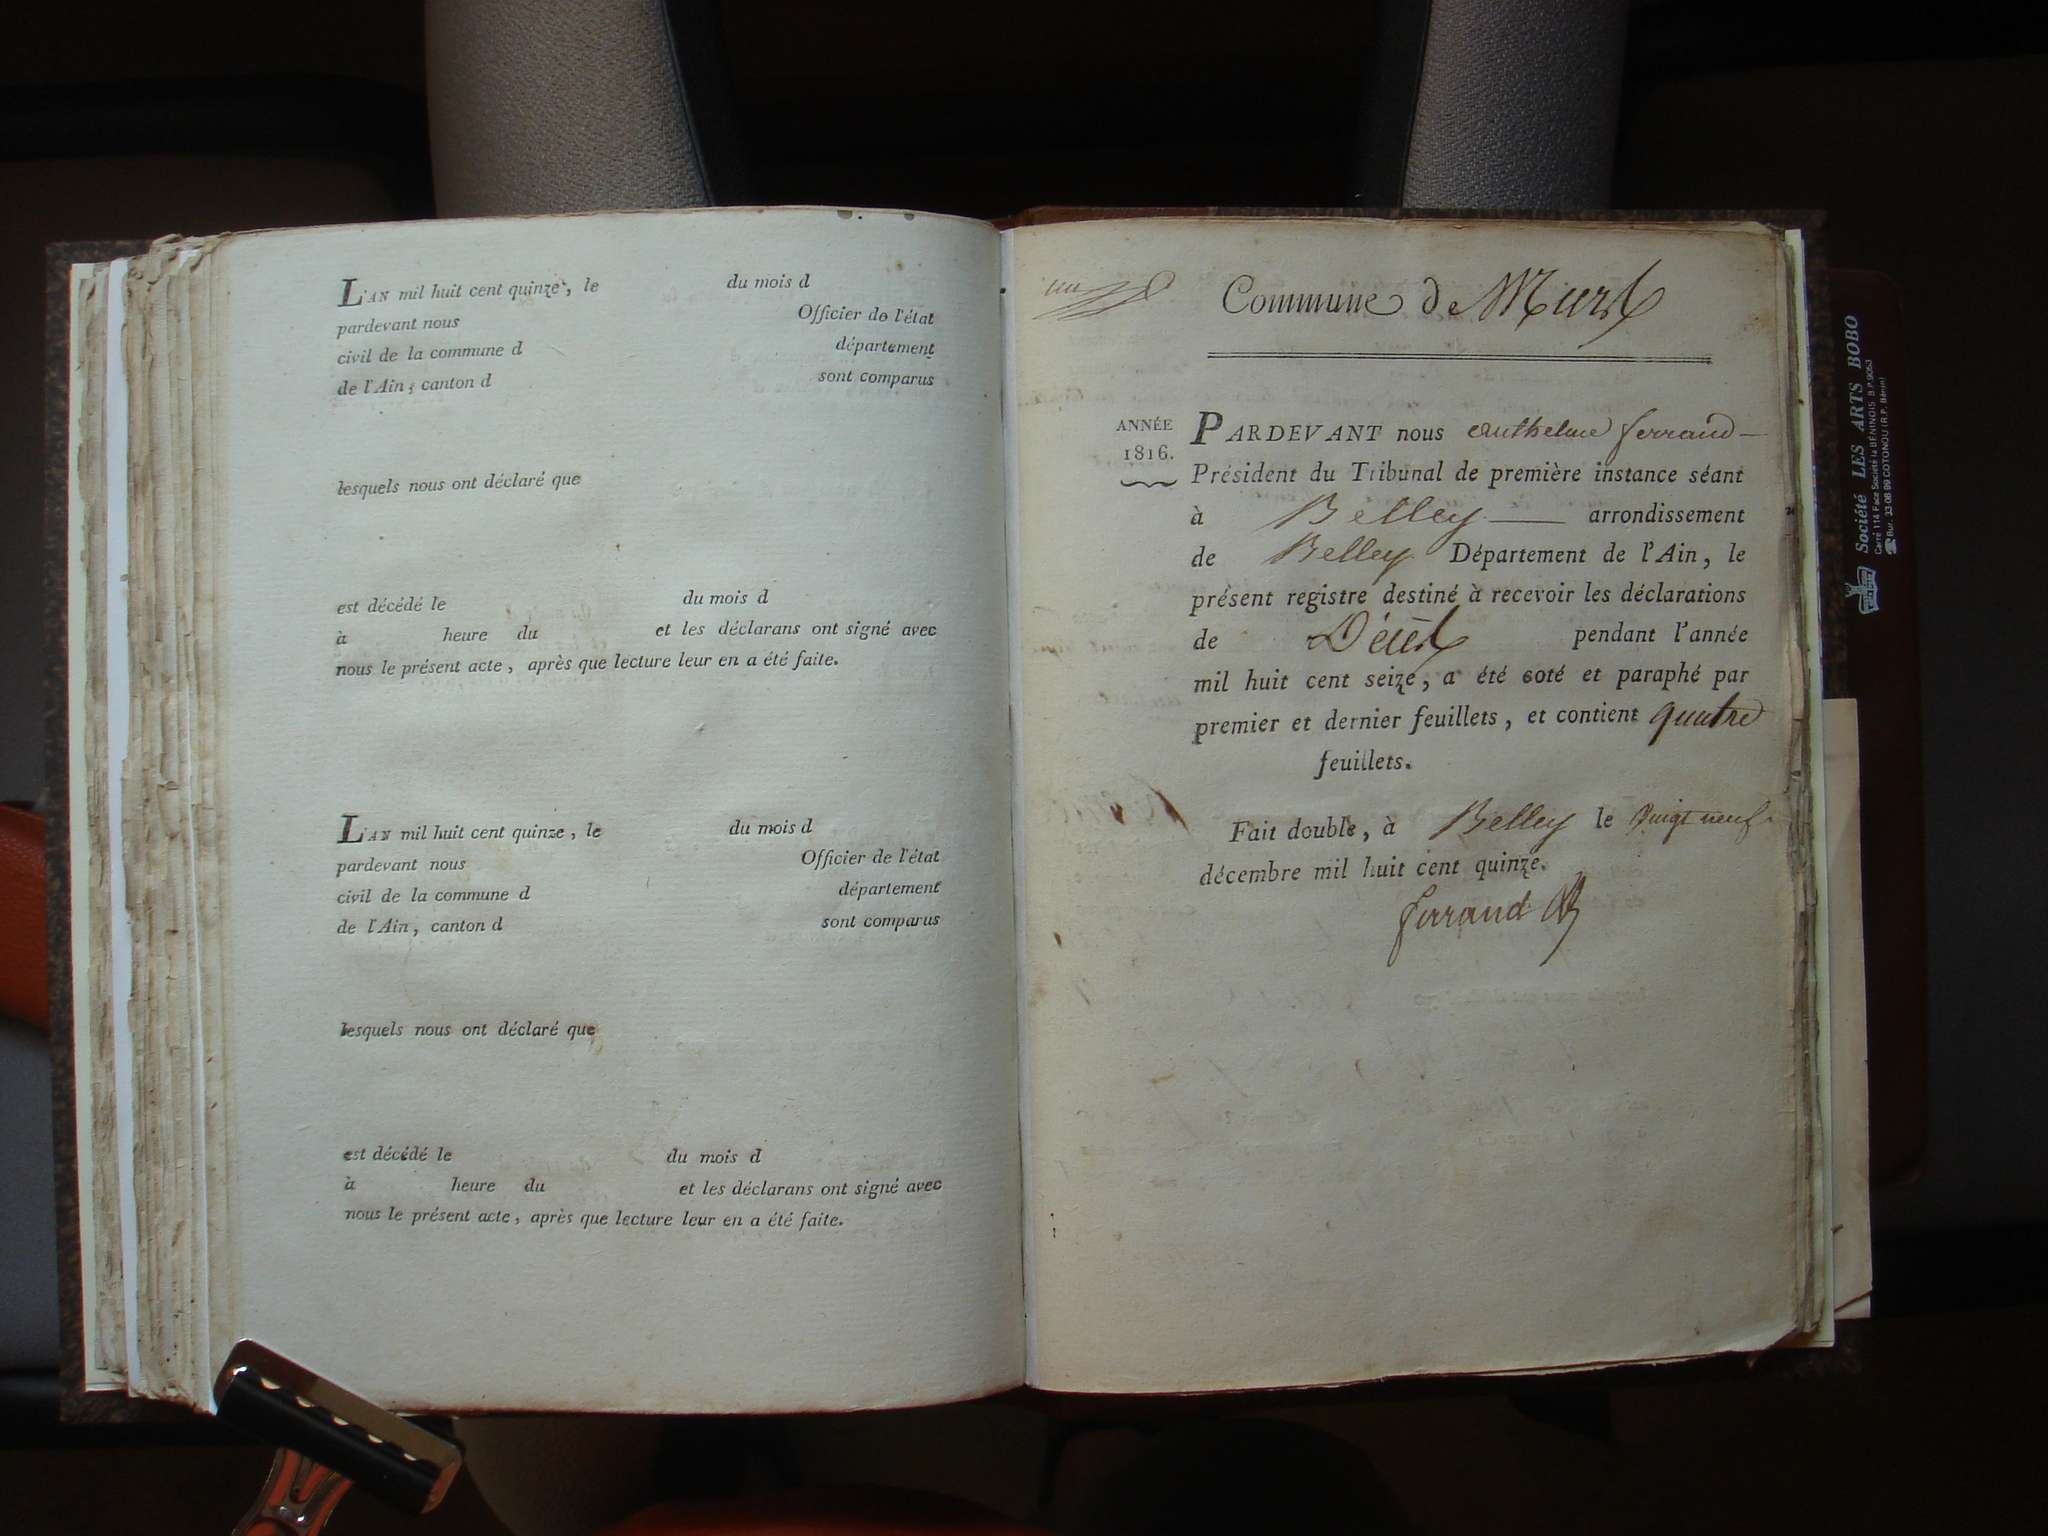 L'AN mil huit cent quinze, le du mois d
pardevant nous Officier de l'état
civil de la commune d département
de l'Ain, canton d sont comparus
lesquels nous ont déclaré que
est décédé le du mois d
à heure du et les déclarans ont signé avec
nous le présent acte, après que lecture leur en a été faite.
L'AN mil huit cent quinze, le du mois d
pardevant nous Officier de l'état
civil de la commune d département
de l'Ain, canton d sont comparus
lesquels nous ont déclaré que
est décédé le du mois d
à heure du et les déclarans ont signé avec
nous le présent acte, après que lecture leur en a été faite.
un
Commune de Murs
ANNÉE
1816.
PARDEVANT nous anthelme ferrand
Président du Tribunal de première instance séant
à Belley arrondissement
de Belley Département de l'Ain, le
présent registre destiné à recevoir les déclarations
de Décès pendant l'année
mil huit cent seize, a été coté et paraphé par
premier et dernier feuillets, et contient quatre
feuillets.
Fait double, à Belley le vingt neuf
décembre mil huit cent quinze.
ferrand
Société LES ARTS BOBO
Carré 114 Face Société la BÉNINOIS B.P. 9053
Bur. 33-08 99 COTONOU (R.P. Bénin)